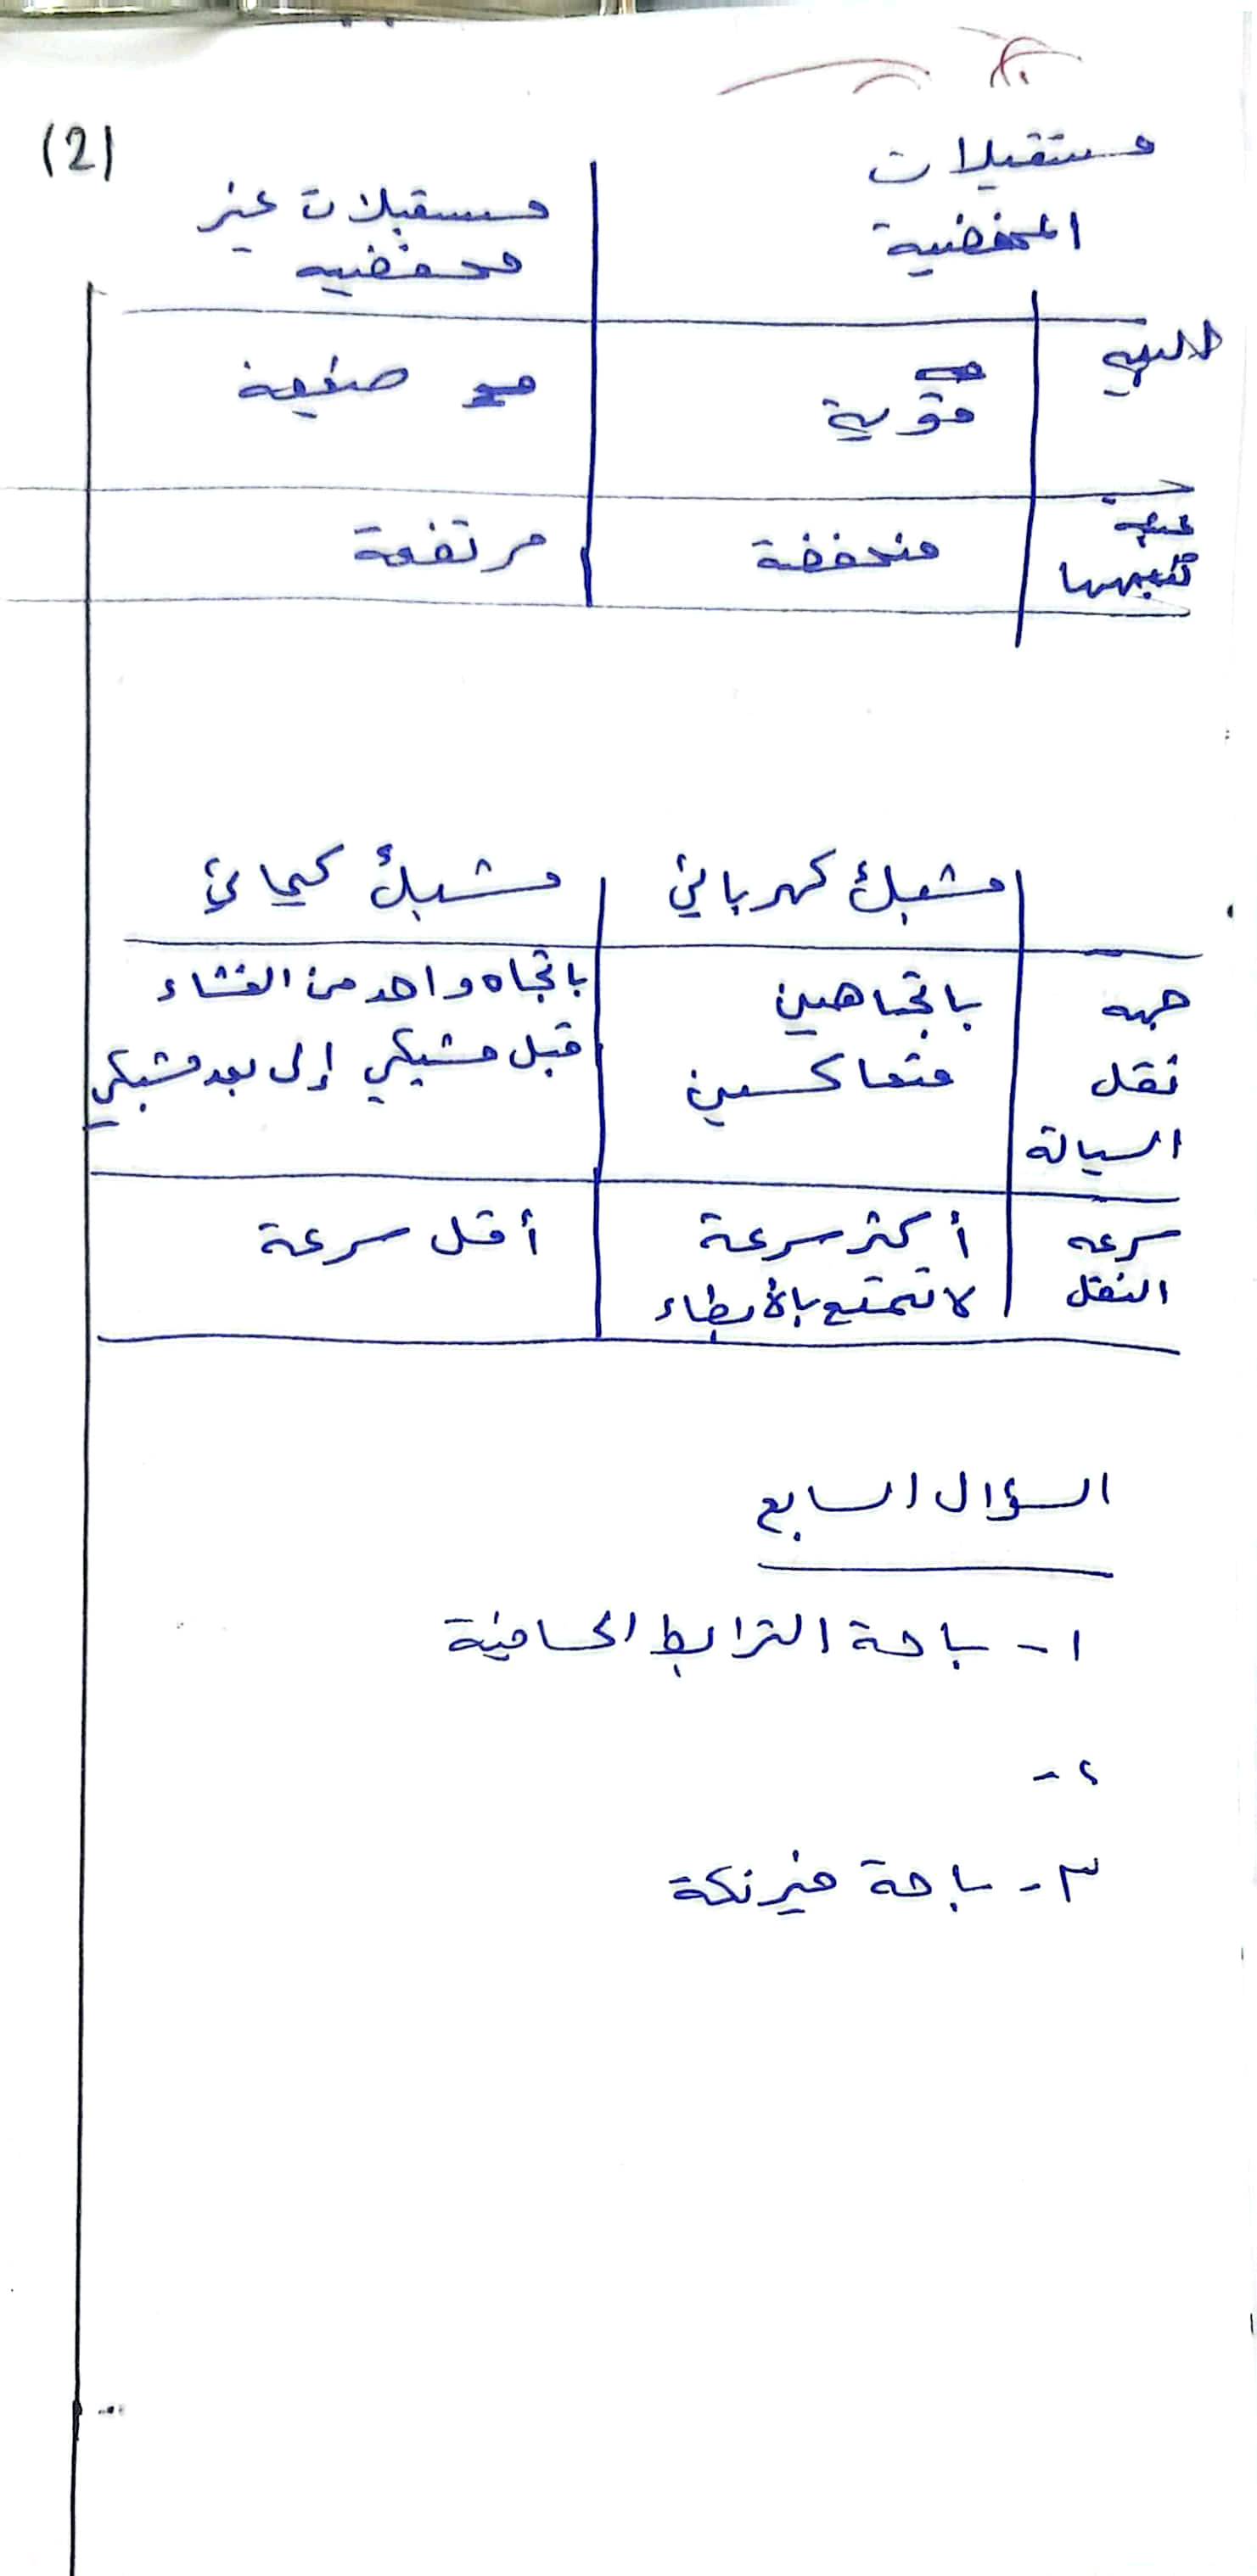 (2)
مستقبلات
المحفظية
مسقبلات غير
محفظيه
قوية
ضعيفة
عتبة
تنبيهها
منخفضة
مرتفعة
مشبك كهربائي
مشبك كيميائي
جهه
نقل
السيالة
باتجاهين
متعاكسين
باتجاه واحد من الغشاء
قبل مشبكي إلى بعد مشبكي
سرعه
النقل
أكثر سرعة
لا تتمتع بالأبطاء
أقل سرعة
السؤال السابع
١- باحة الترابط الحافية
٢-
٣- باحة فيرنكة